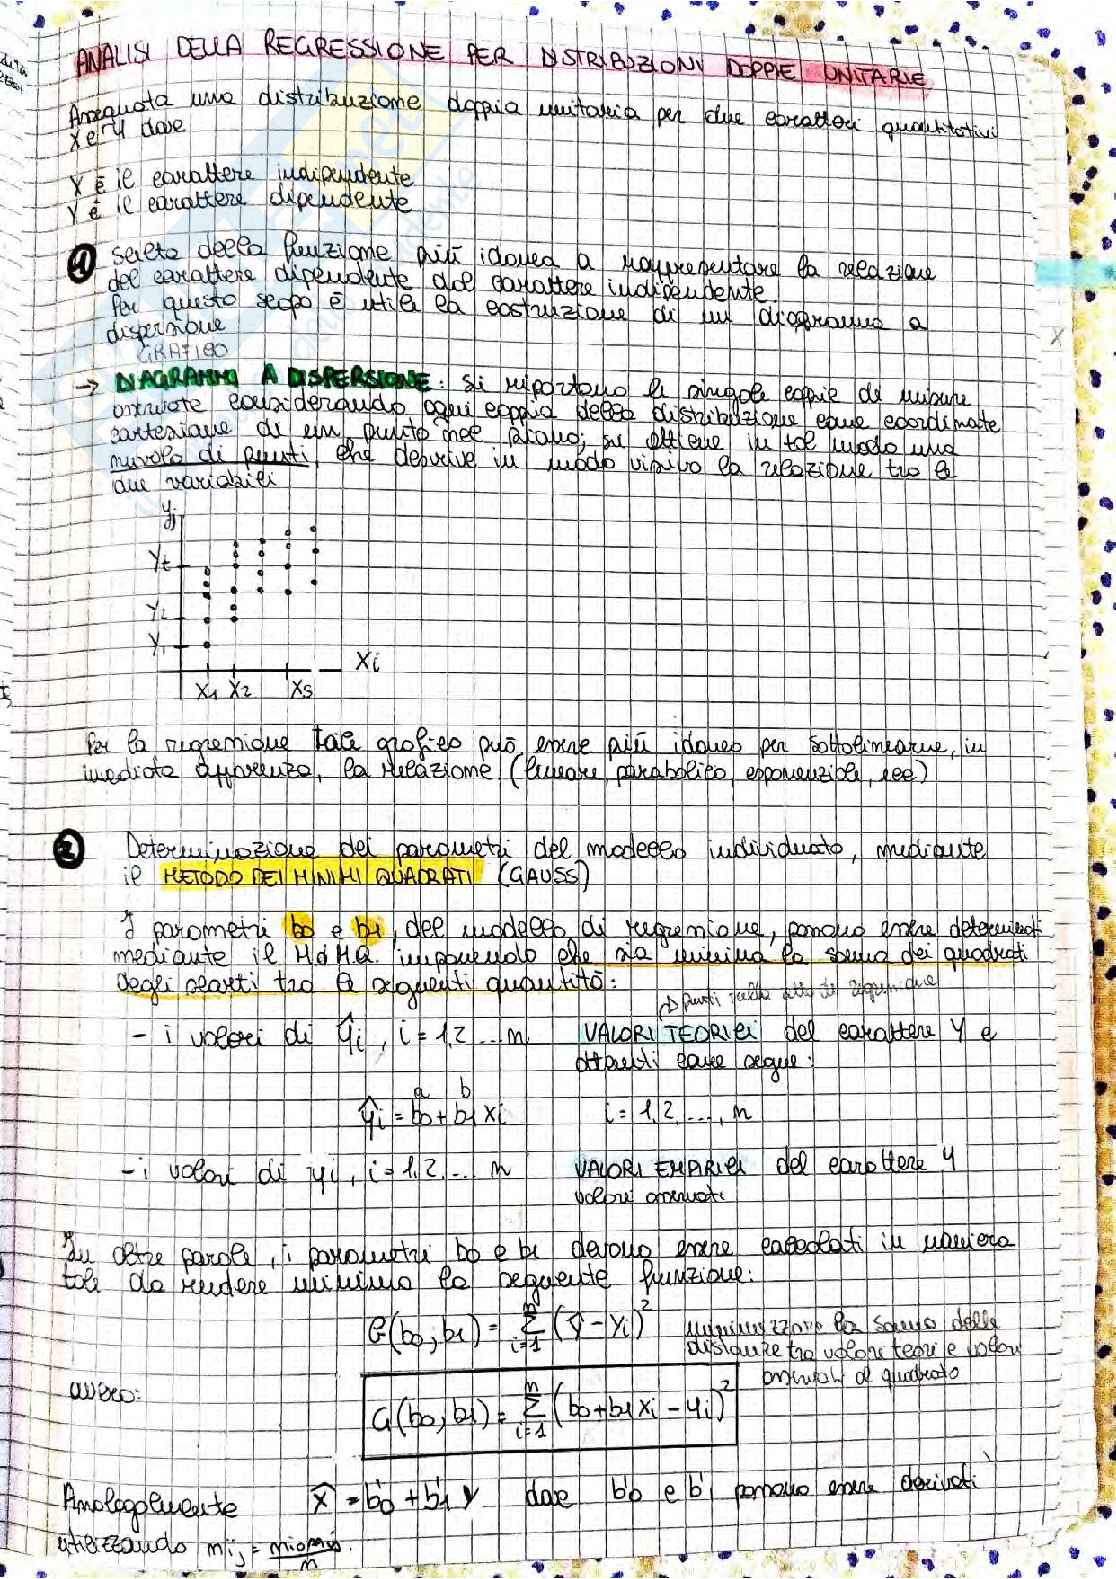 ANALISI DELLA REGRESSIONE PER DISTRIBUZIONI DOPPIE UNITARIE
Assegnata una distribuzione doppia unitaria per due caratteri quantitativi
X e Y dove
X è il carattere indipendente
Y è il carattere dipendente
1 Scelta della funzione più idonea a rappresentare la relazione
del carattere dipendente dal carattere indipendente.
Per questo scopo è utile la costruzione di un diagramma a
dispersione
GRAFICO
→ DIAGRAMMA A DISPERSIONE: si riportano le singole coppie di misure
osservate considerando ogni coppia della distribuzione come coordinate
cartesiane di un punto nel piano; si ottiene in tal modo una
nuvola di punti, che descrive in modo visivo la relazione tra le
due variabili
yj
Yt
Y2
Y1
X1 X2 Xs
Xi
Per la regressione tale grafico può essere più idoneo per sottolinearne, in
immediata apparenza, la relazione (lineare, parabolica, esponenziale, ecc)
2 Determinazione dei parametri del modello individuato, mediante
il METODO DEI MINIMI QUADRATI (GAUSS)
I parametri b0 e b1, del modello di regressione, possono essere determinati
mediante il M.d.M.Q. imponendo che sia minima la somma dei quadrati
degli scarti tra le seguenti quantità:
punti sulla retta di regressione
- i valori di ŷi, i = 1,2 ... n VALORI TEORICI del carattere Y e
ottenuti come segue:
a b
ŷi = b0 + b1 xi i = 1,2,...,n
- i valori di yi, i = 1,2,... n VALORI EMPIRICI del carattere Y
valori osservati
In altre parole, i parametri b0 e b1 devono essere calcolati in maniera
tale da rendere minimo la seguente funzione:
G(b0; b1) = n Σ i=1 (ŷ - yi)² minimizzare la somma delle
distanze tra valori teorici e valori
osservati al quadrato
ovvero:
G(b0; b1) = n Σ i=1 (b0 + b1 xi - yi)²
Analogamente x̂ = b'0 + b'1 y dove b'0 e b'1 possono essere derivati
utilizzando